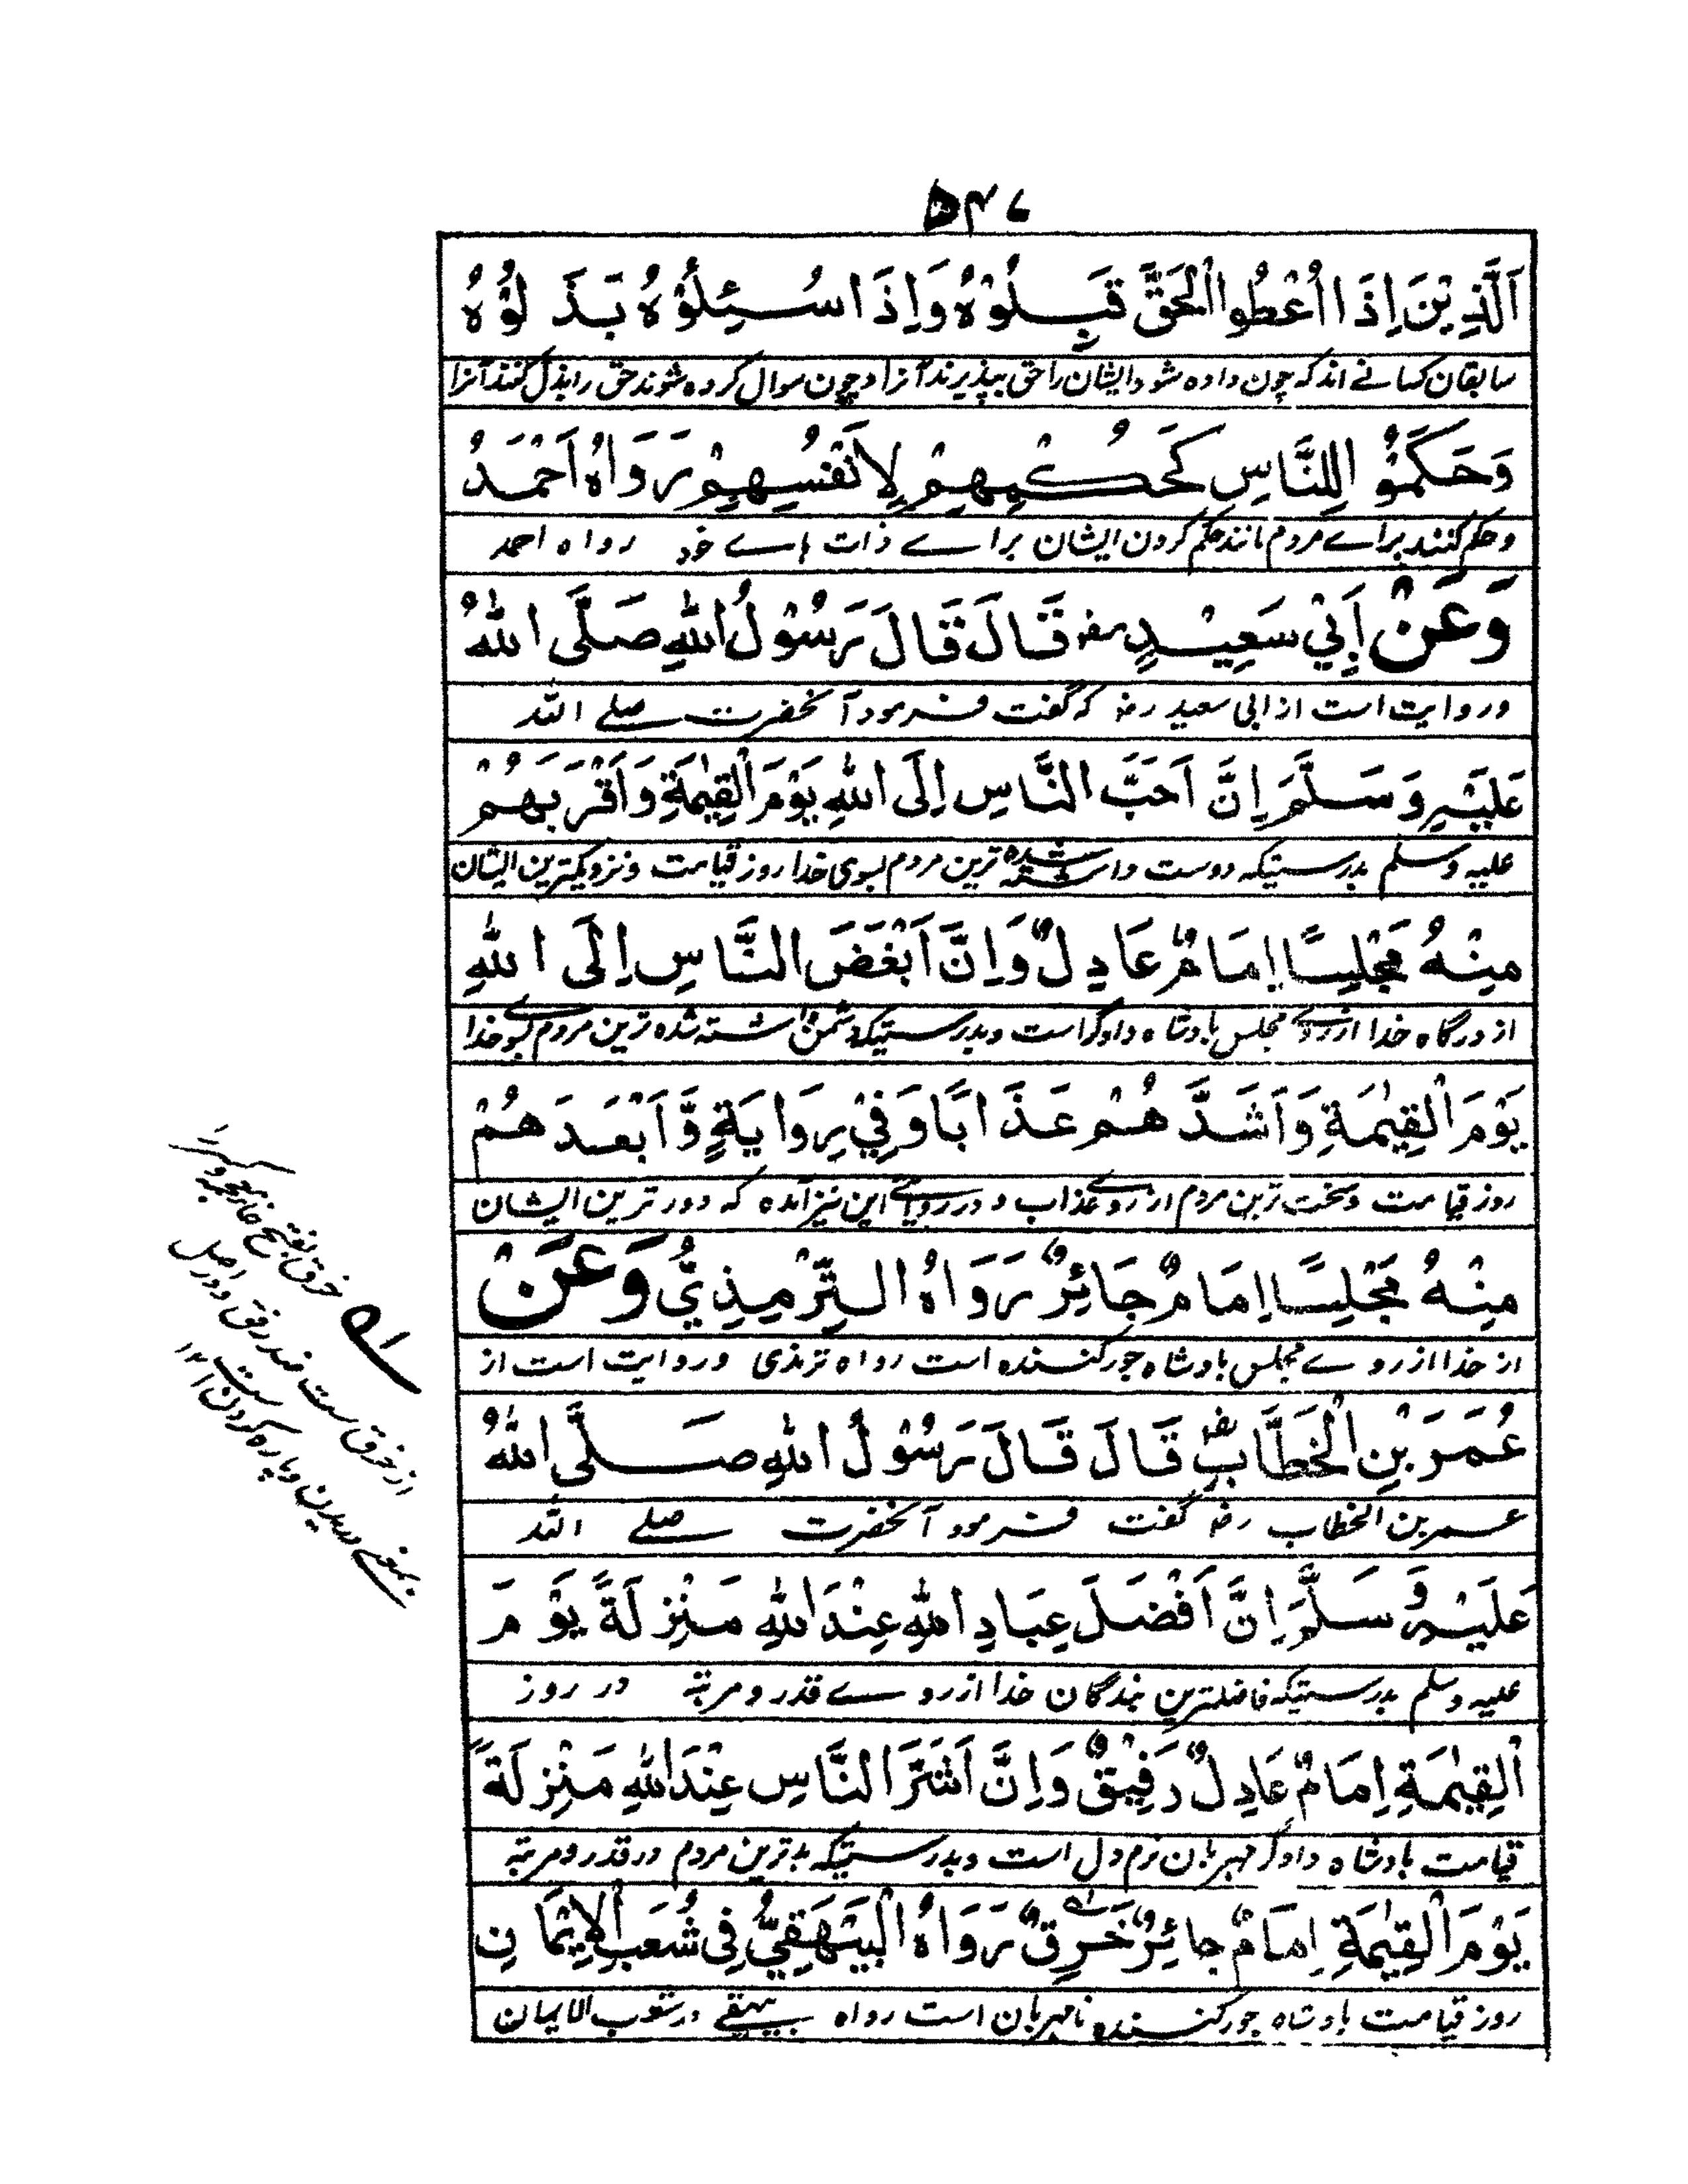 ۵۴۷
اَلَّذِيْنَ اِذَا اُعْطُوا الْحَقَّ قَبِلُوْهُ وَاِذَا سُئِلُوْهُ بَذَلُوْهُ
سابقان کسانے اند کہ چون داده شود ایشان را حق بپذیرند آنرا و چون سوال کرده شوند حق را بذل کنند آنرا
وَحَكَمُوْا لِلنَّاسِ كَحُكْمِهِمْ لِاَنْفُسِهِمْ رَوَاهُ اَحْمَدُ
و حکم کنند براے مردم مانند حکم کردن ایشان براے ذات ہاے خود رواه احمد
وَعَنْ اَبِيْ سَعِيْدٍ رضہ قَالَ قَالَ رَسُوْلُ اللهِ صَلَّى اللهُ
و روایت است از ابی سعید رضہ کہ گفت فرمود آنحضرت صلے اللہ
عَلَيْهِ وَسَلَّمَ اِنَّ اَحَبَّ النَّاسِ اِلَى اللهِ يَوْمَ الْقِيٰمَةِ وَاَقْرَبَهُمْ
علیہ وسلم بدرستیکہ دوست داشتہ شده ترین مردم بسوی خدا روز قیامت و نزدیکترین ایشان
مِنْهُ مَجْلِسًا اِمَامٌ عَادِلٌ وَاِنَّ اَبْغَضَ النَّاسِ اِلَى اللهِ
از درگاه خدا ازروے مجلس بادشاه دادگر است و بدرستیکہ دشمن داشتہ شده ترین مردم بسوے خدا
يَوْمَ الْقِيٰمَةِ وَاَشَدَّهُمْ عَذَابًا وَفِيْ رِوَايَةٍ وَّاَبْعَدَهُمْ
روز قیامت و سخت ترین مردم ازروے عذاب و در روایتے این نیز آمده کہ دور ترین ایشان
مِنْهُ مَجْلِسًا اِمَامٌ جَائِرٌ رَوَاهُ التِّرْمِذِيُّ وَعَنْ
از خدا ازروے مجلس بادشاه جور کننده است رواه ترمذی و روایت است از
عُمَرَ بْنِ الْخَطَّابِ رضہ قَالَ قَالَ رَسُوْلُ اللهِ صَلَّى اللهُ
عمر بن الخطاب رضہ گفت فرمود آنحضرت صلے اللہ
عَلَيْهِ وَسَلَّمَ اِنَّ اَفْضَلَ عِبَادِ اللهِ عِنْدَ اللهِ مَنْزِلَةً يَوْمَ
علیہ وسلم بدرستیکہ فاضلترین بندگان خدا ازروے قدر و مرتبہ در روز
الْقِيٰمَةِ اِمَامٌ عَادِلٌ رَفِيْقٌ وَاِنَّ اَشَرَّ النَّاسِ عِنْدَ اللهِ مَنْزِلَةً
قیامت بادشاه دادگر مہربان نرم دل است و بدرستیکہ بدترین مردم در قدر و مرتبہ
يَوْمَ الْقِيٰمَةِ اِمَامٌ جائِرٌ خَرِقٌ رَوَاهُ الْبَيْهَقِيُّ فِى شُعَبِ الْاِيْمَانِ
روز قیامت بادشاه جور کننده نامہربان است رواه بیہقے در شعب الایمان
خرق بفتح خا
از خرق ست ضد رفق و در اصل
بمعنے دریدن و پاره کردن ست ۱۲